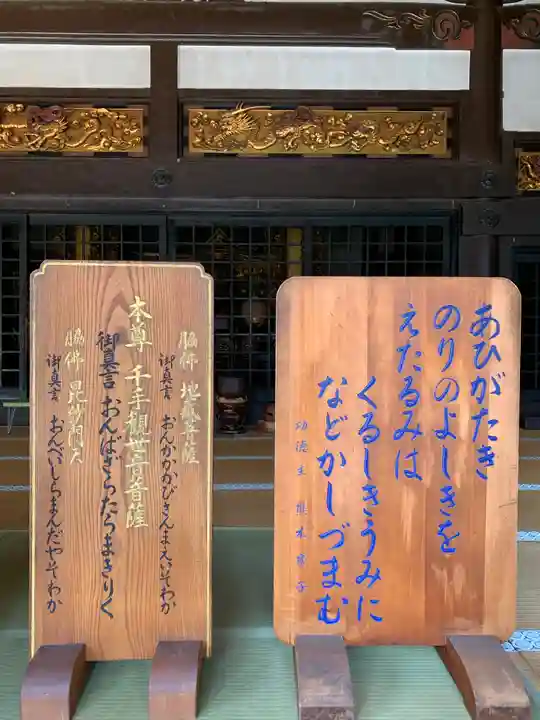 脇佛 地蔵菩薩
御真言 おんかかかびさんまえいそわか
本尊 千手観世音菩薩
御真言 おんばざらたらまきりく
脇佛 毘沙門天
御真言 おんべいしらまんだやそわか
あひがたき
のりのよしきを
えたるみは
くるしきうみに
などかしづまむ
功徳主